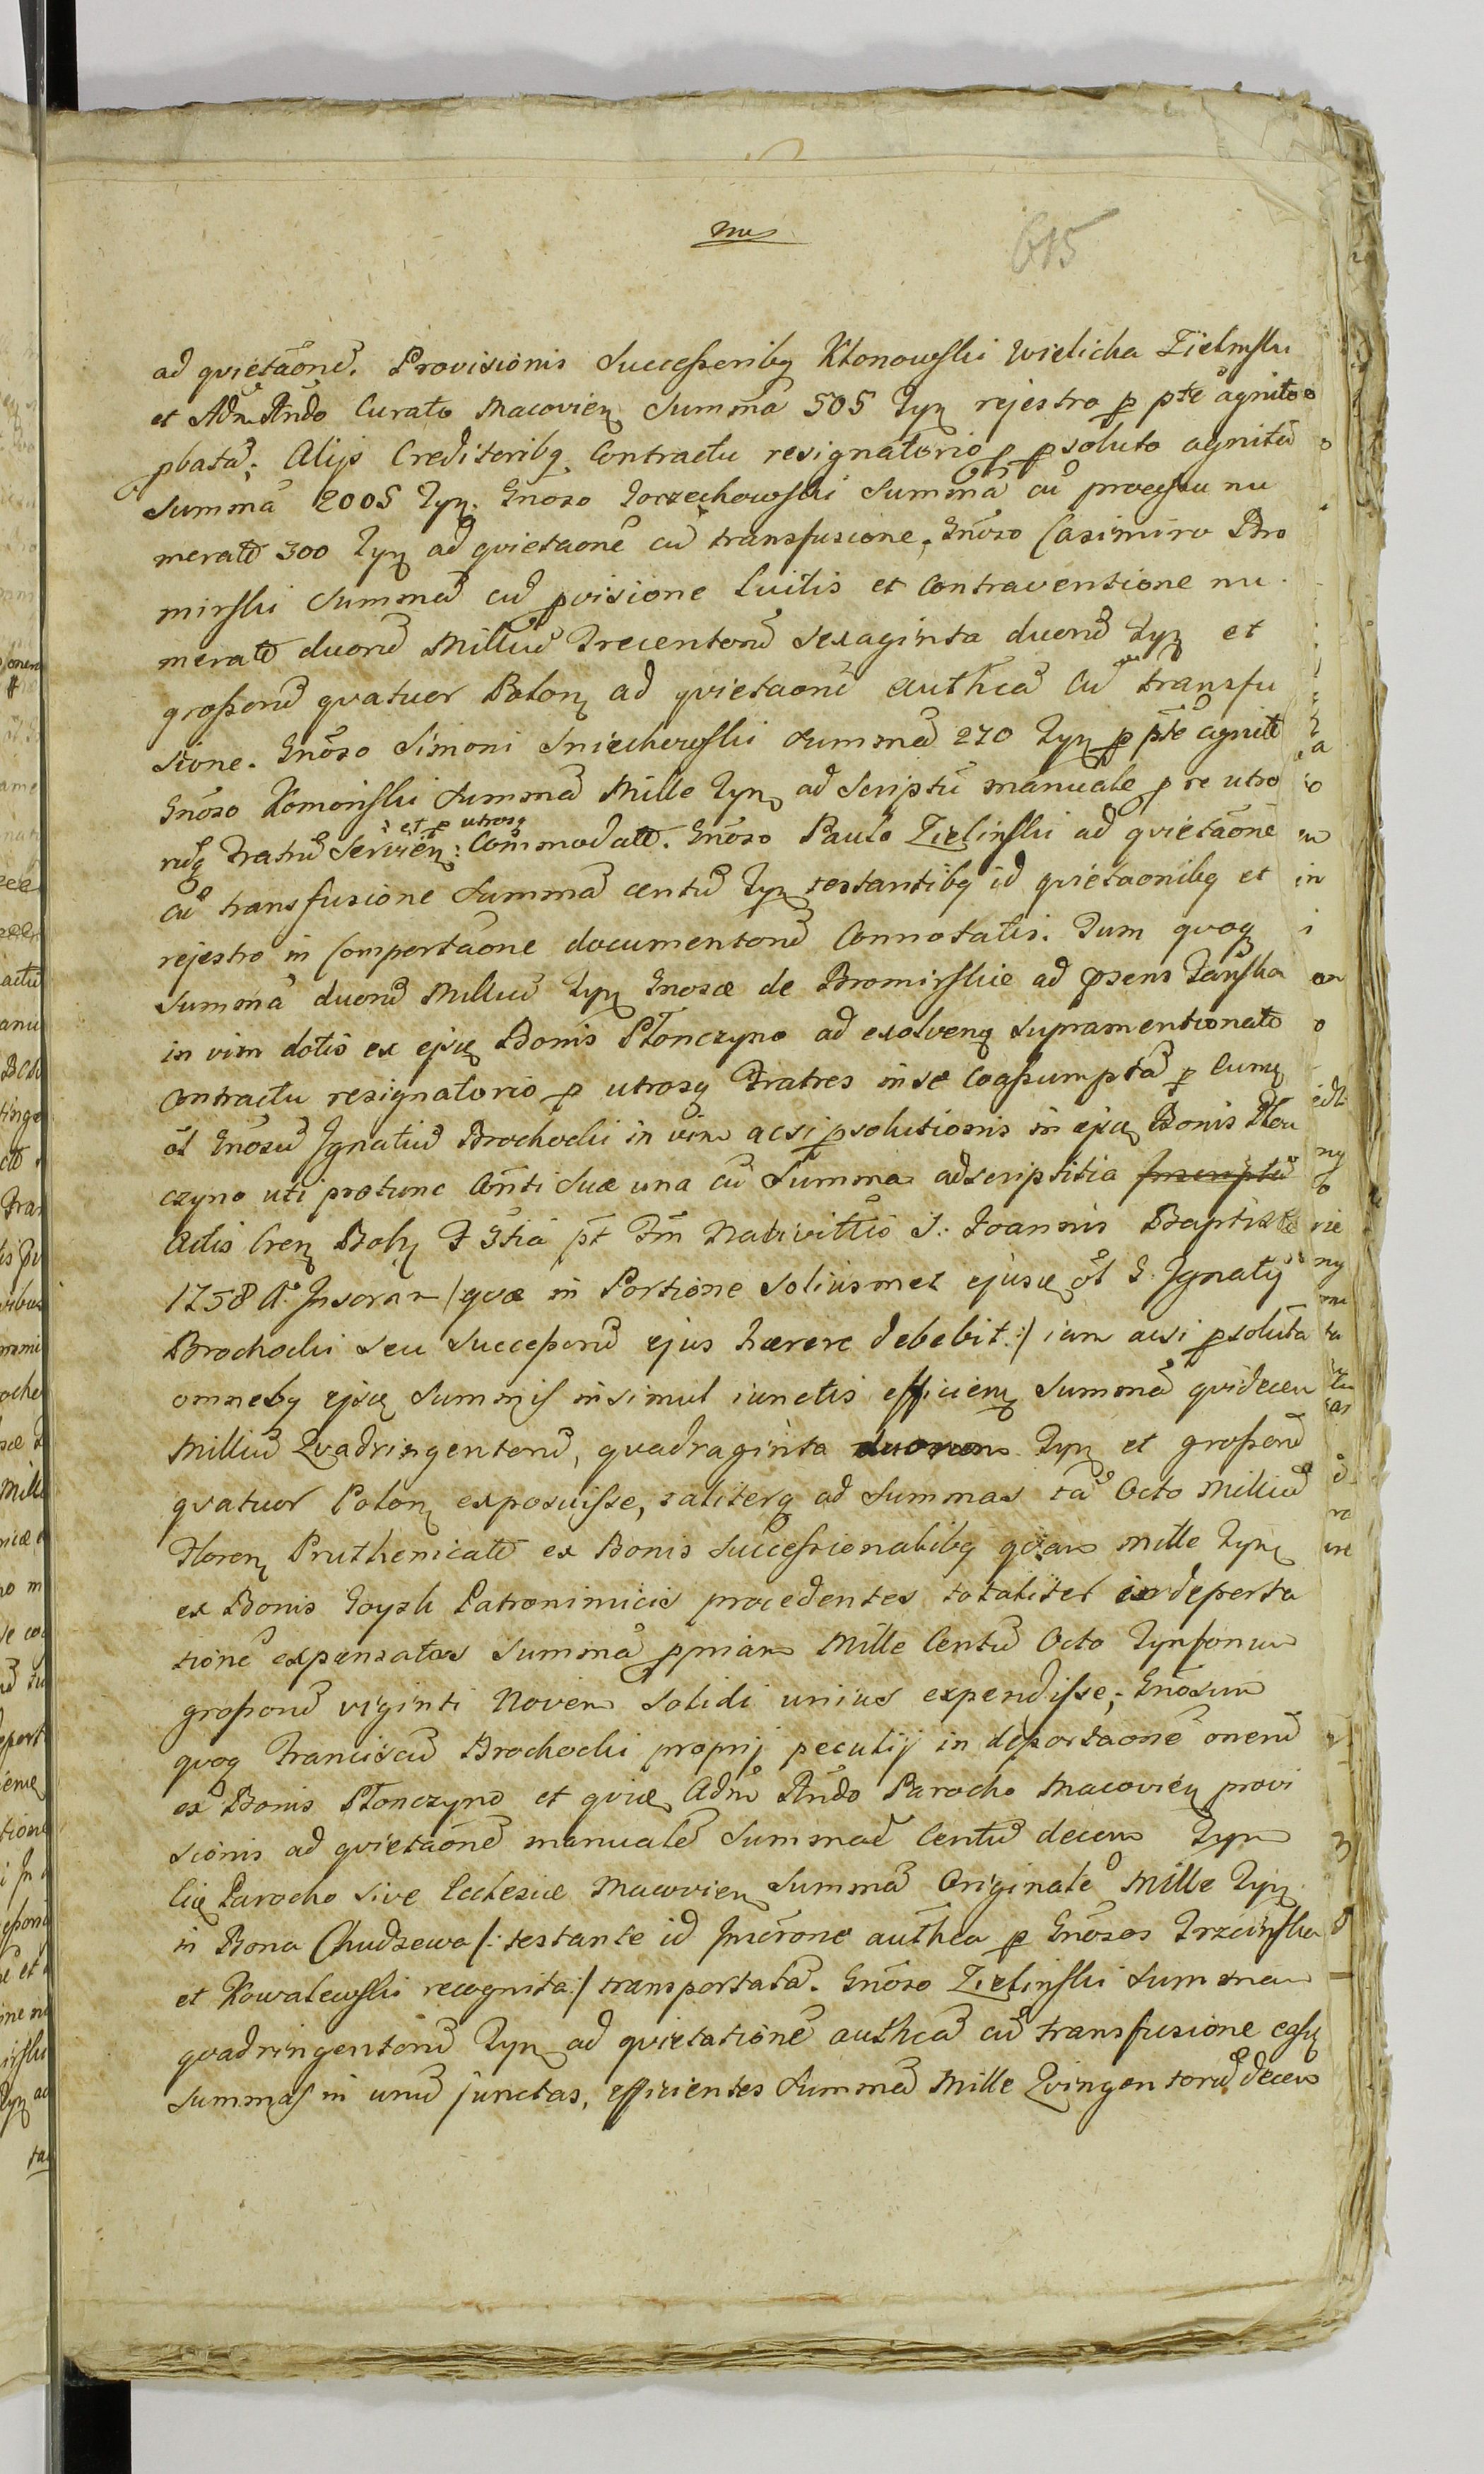 mus
615
ad qvietaõne. Provisionis Successoribq Kłonowski Wielicka Zielinski
et Adm Rndo Curato Macovien Summã 505 Tyn rejestro p pte agnito
pbatã. Alijs Creditoribq Contractu resignatorio p psoluto agnitã
Summã 2005 Tyn. Gnõso Gorzechowski Summã cũ processu nu
meratã 300 Tyn ad qvietaonẽ cũ transfusione. Gnõso Casimiro Bro
mirski Summã cũ pvisione Luitis et Contraventione nu
meratã duorũ Milliũ Trecentorũ Sexaginta duorũ Tyn et
grossorũ qvatuor Polon ad qvietaonẽ authcã Cũ transfu
sione. Gnõso Simoni Sniechowski Summã 270 Tyn p pte agnitã
Gnõso Komorski Summã Mille Tyn ad Scriptũ manuale p re utro
rũq Fratrũ Servien: Commodatã. Gnõso Paulo Zielinski ad qvietaõne
et p utrosq
cũ transfusione Summã centũ Tyn testantibq id qvietaonibq et
rejestro in Comportaõne documentorũ Connotatis. Tum qvoq
Summã duorũ Milliũ Tyn Gnosæ de Bromirskie ad psens
in vim dotis ex ejsq Bonis Płonczyno ad exolven supramentionatõ
Contractu resignatorio p utrosq Fratres in se Coassumptã p
ol Gnõsũ Ignatiũ Brochocki in vim acsi psolutionis in ejsq Bonis Płon
czyno uti protunc Cõnti Suæ una cũ Summa adscriptitia Inscriptã
Actis Cren F 3tia pt Fm Nativittis S. Joannis Baptistæ
1758 Aõ Inscran / qvæ in Portione Soliusmet ejusq ol G. Ignatij
Brochocki seu Successorũ ejus hærere debebit :/ iam acsi psoluta
omnebq ejsq Summis insimul iunctis efficien Summã qvidecem
Milliũ Qvadringentorũ, qvadraginta duorum Tyn et grossorũ
qvatuor Polon exposuisse, taliterq ad Summas tã Octo Milliũ
Floren Pruthenicatũ ex Bonis Successionalibq qvam mille Tyn
ex Bonis Goysk Patronimicis procedentes totaliter in deporta
tionẽ expensatas Summã ppriam Mille Centũ Octo Tynfonum
grossorũ viginti Novem Solidi unius expendisse; Gnõsum
qvoq Franciscũ Brochocki proprij peculij in deportaõnẽ onerũ
ex Bonis Płonczyno et qvieq Adm Rndo Parocho Macovien provi
sionis ad qvietaõnẽ manualẽ Summã Centũ decem Tyn
Parocho sive Ecclesiæ Macovien Summã Originalẽ Mille Tyn
in Bona Chudzewo /: testante id Inscrõne authca p Gnõsos Trzcinski
et Kowalewski recognita :/ transportatã. Gnõso Zielinski Summam
qvadringentorũ Tyn ad qvietationẽ authcã cũ transfusione easq
Summas in unũ junctas, efficientes Summã Mille Qvingentorũ decem